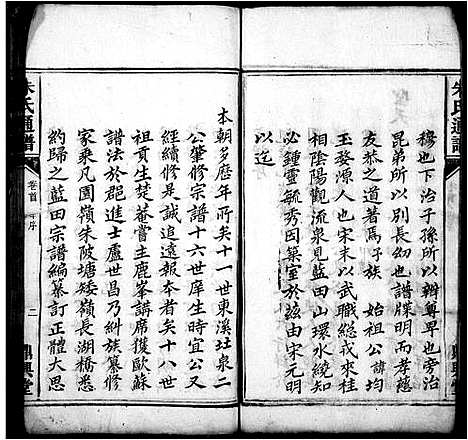 朱氏通譜
穆也下治子孫所以辨尊卑也旁治
昆弟所以別長幼也譜牒明而孝慈
友恭之道著焉予族 始祖公諱均
玉婺源人也宋末以武職總戎來桂
相陰陽觀流泉見藍田山環水繞知
必鍾靈毓秀因築室於兹由宋元明
以迄
本朝多歷年所矣十一世東溪圵泉二
公肇修宗譜十六世席生時宜公又
經續修是誠追遠報本者矣十八世
祖貢生楚菴嘗主鹿峯講席獲歐蘇
譜法於郡進士盧世昌乃糾族纂修
家乘凡園嶺朱陂塘矮嶺長湖橋悉
約歸之藍田宗譜編纂訂正體大思
朱氏通譜
卷首
序
二
鼎興堂